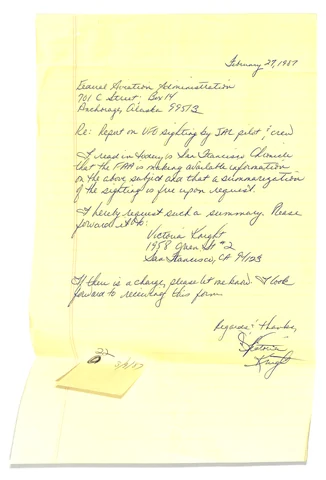 February 27, 1987
Federal Aviation Administration
701 C Street Box 14
Anchorage, Alaska 99513
Re: Report on UFO sighting by JAL pilot & crew
I read in today's San Francisco Chronicle
that the FAA is making available information
on the above subject and that a summarization
of the sighting is free upon request.
I hereby request such a summary. Please
forward it to:
Victoria Knight
1958 Green St #2
San Francisco, CA 94123
If there is a charge, please let me know. I look
forward to receiving this form
Regards & thanks,
Victoria
Knight
22